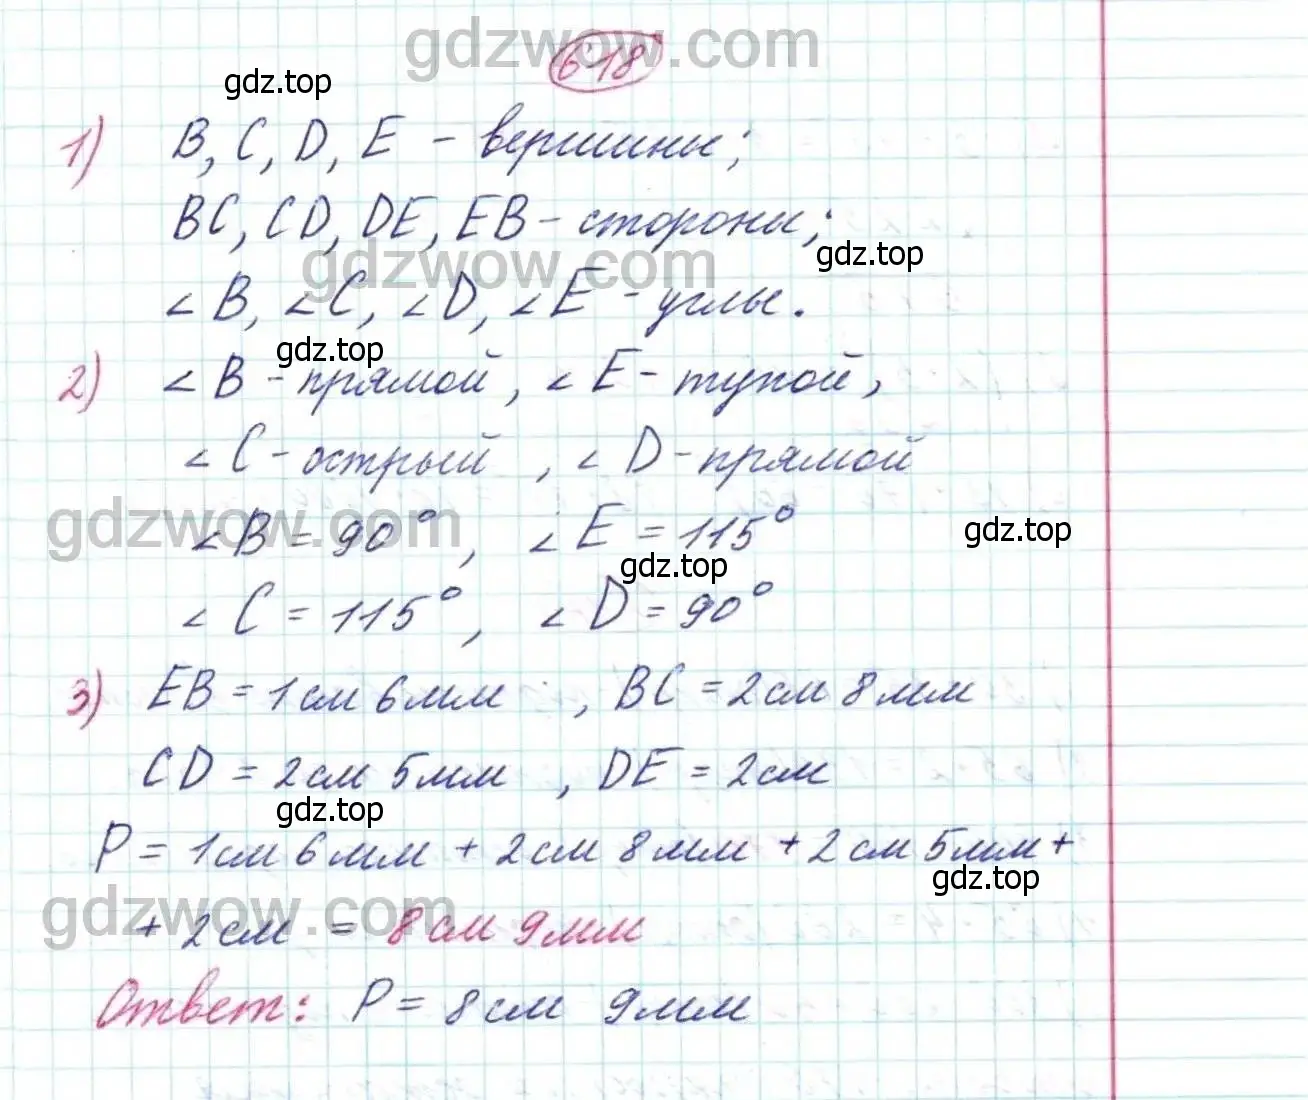 gdzwow.com
6.18
gdz.top
1) B, C, D, E - вершины;
BC, CD, DE, EB - стороны;
gdz.top
gdzwow.com
∠B, ∠C, ∠D, ∠E - углы.
gdz.top
2) ∠B - прямой, ∠E - тупой,
∠C - острый, ∠D - прямой
gdzwow.com
∠B = 90°, ∠E = 115°
gdz.top
gdz.top
∠C = 115°, ∠D = 90°
3) EB = 1см 6мм, BC = 2см 8мм
CD = 2см 5мм, DE = 2см
gdz.top
P = 1см 6мм + 2см 8мм + 2см 5мм +
gdz.top
gdzwow.com
+ 2см = 8см 9мм
Ответ: P = 8см 9мм